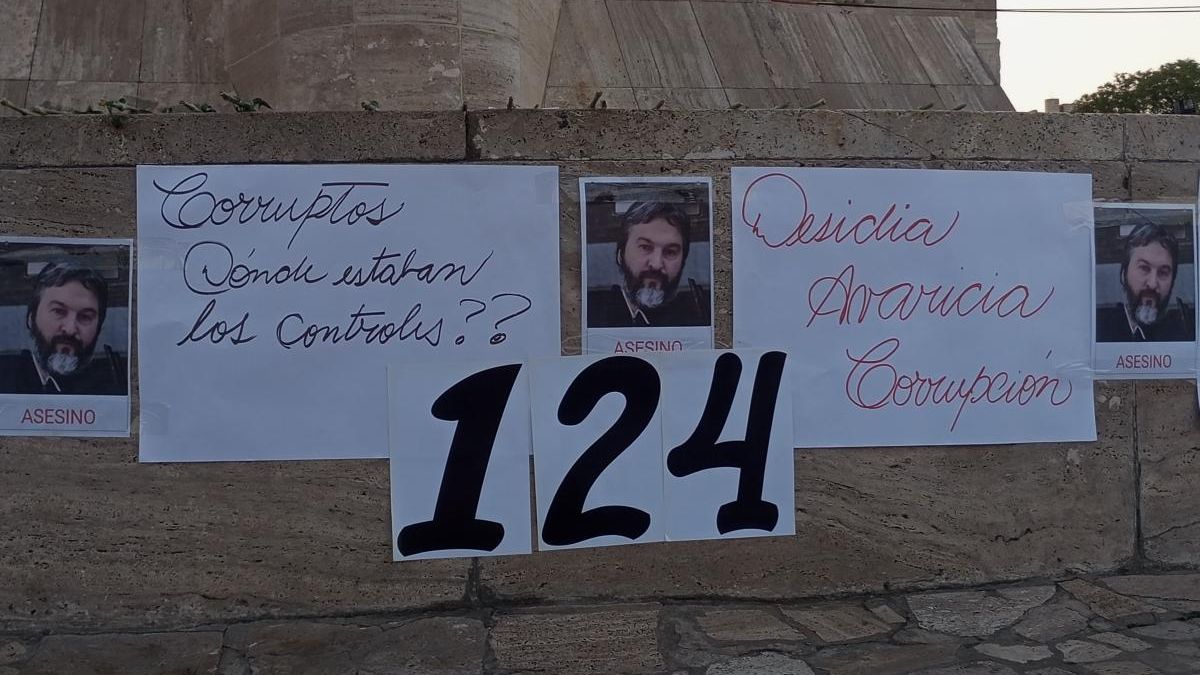 ASESINO
Corruptos
Dónde estaban
los controles??
ASESINO
124
Desidia
Avaricia
Corrupción
ASESINO